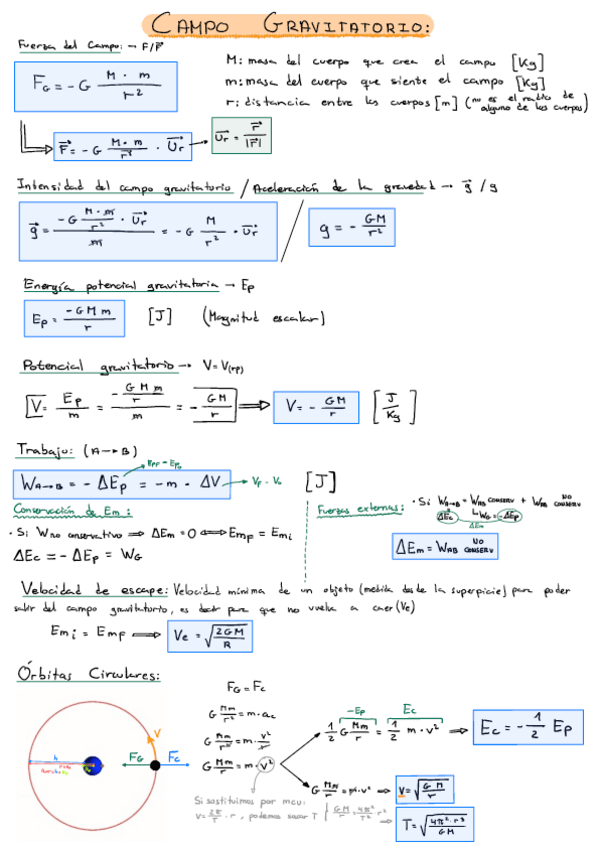 CAMPO GRAVITATORIO:
Fuerza del Campo: → F/F⃗
F_G = - G M · m / r²
M: masa del cuerpo que crea el campo [Kg]
m: masa del cuerpo que siente el campo [Kg]
r: distancia entre los cuerpos [m] (no es el radio de alguno de los cuerpos)
F⃗ = - G M · m / r² · U⃗r → U⃗r = r⃗ / |r⃗|
Intensidad del campo gravitatorio / Aceleración de la gravedad → g⃗ / g
g⃗ = (-G M · m / r² · U⃗r) / m = - G M / r² · U⃗r / g = - GM / r²
Energía potencial gravitatoria → Ep
Ep = -G M m / r [J] (Magnitud escalar)
Potencial gravitatorio → V = V(rp)
V = Ep / m = (- G M m / r) / m = - GM / r ⇒ V = - GM / r [J / Kg]
Trabajo: (A → B)
W A→B = - ΔEp = - m · ΔV [J]
Conservación de Em:
· Si W no conservativo ⇒ ΔEm = 0 ⇔ Em_F = Em_i
ΔEc = - ΔEp = W_G
Fuerzas externas: · Si W A→B = W AB CONSERV + W AB NO CONSERV
ΔEc W_G = -ΔEp
ΔEm
ΔEm = W AB NO CONSERV
Velocidad de escape: Velocidad mínima de un objeto (medida desde la superpicie) para poder
salir del campo gravitatorio, es decir para que no vuelva a caer (Ve)
Em i = Em F ⇒ Ve = √(2GM / R)
Órbitas Circulares:
F_G = F_c
G Mm / r² = m · ac
G Mm / r² = m · v² / r
G Mm / r = m · v²
V
F_G F_c
h
-Ep Ec
1/2 G Mm / r = 1/2 m · v² ⇒ Ec = - 1/2 Ep
G Mm / r = m · v² ⇒ V = √(G M / r)
Si sustituimos por mcu:
v = 2π / T · r, podemos sacar T GM / r = 4π² / T² · r²
T = √(4π² · r³ / GM)